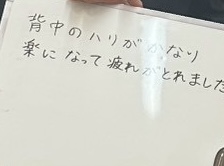 背中のハリがかなり
楽になって疲れがとれました